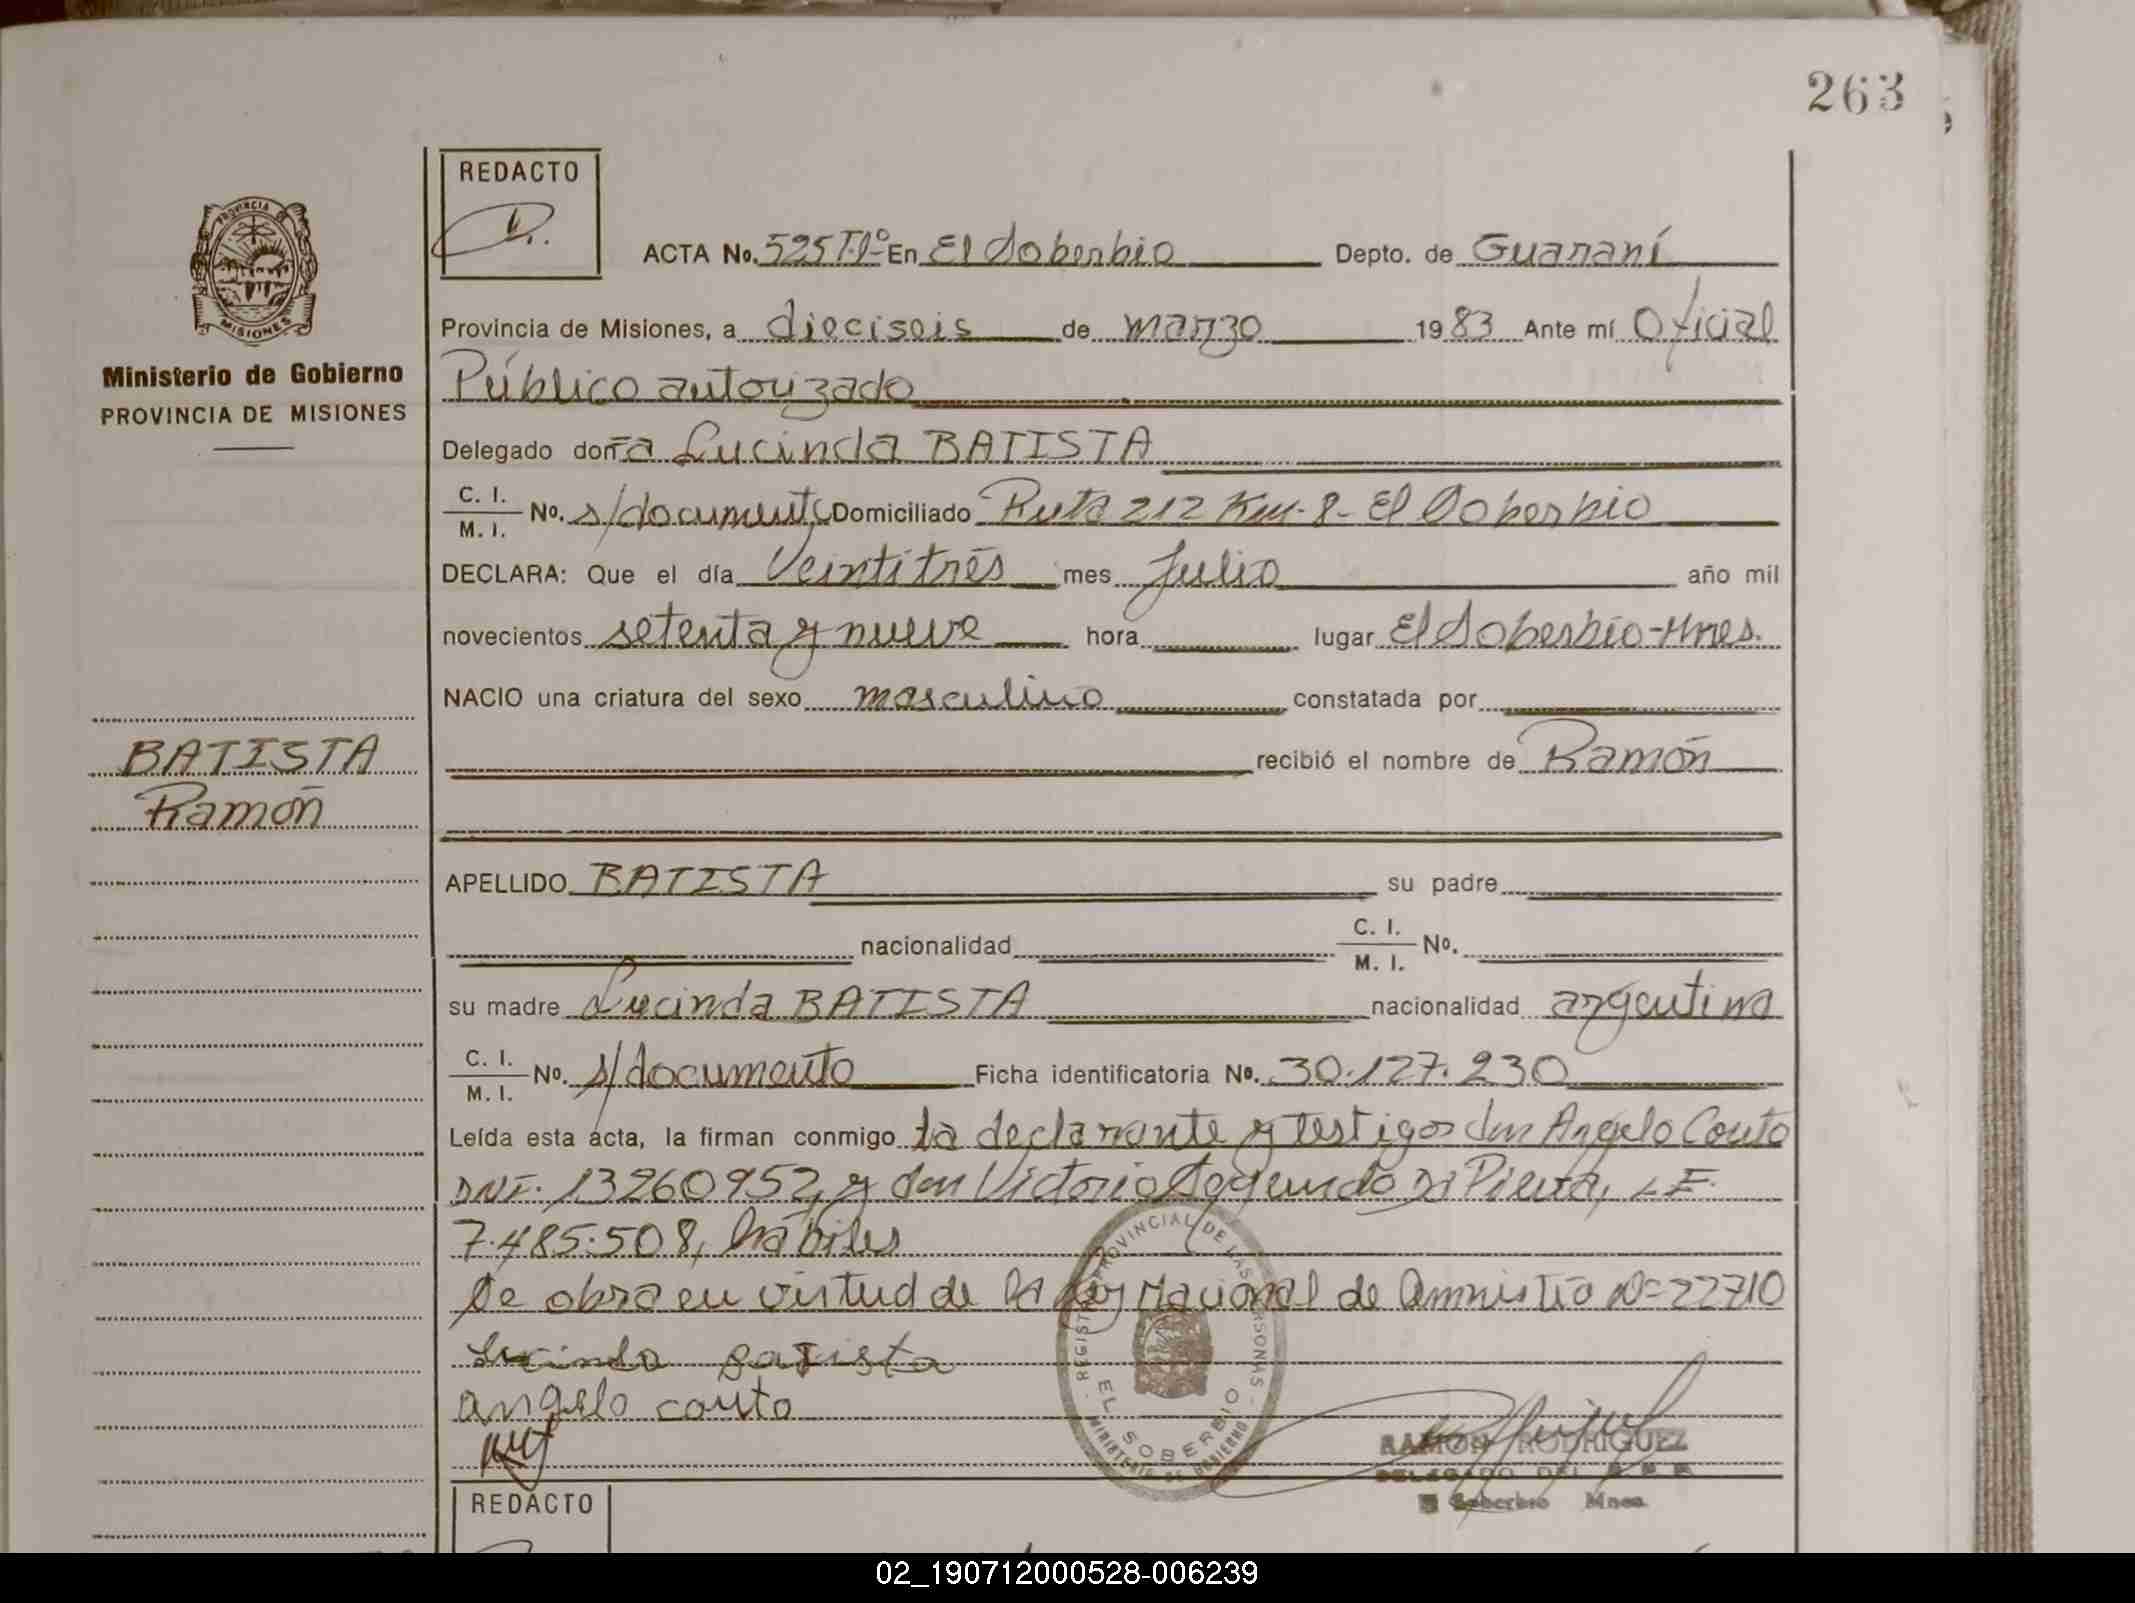 263
REDACTO
ACTA No. 525 T.1º En El Soberbio Depto. de Guaraní
PROVINCIA
MISIONES
Provincia de Misiones, a dieciseis de marzo 1983 Ante mí Oficial
Ministerio de Gobierno
PROVINCIA DE MISIONES
Público autorizado
Delegado doña Lucinda BATISTA
C. I.
M. I. No. s/documento Domiciliado Ruta 212 Km. 8- El Soberbio
DECLARA: Que el día Veintitrés mes Julio año mil
novecientos setenta y nueve hora lugar El Soberbio-Mnes.
NACIO una criatura del sexo masculino constatada por
BATISTA
Ramón
recibió el nombre de Ramón
APELLIDO BATISTA su padre
nacionalidad C. I.
M. I. No.
su madre Lucinda BATISTA nacionalidad argentina
C. I.
M. I. No. s/documento Ficha identificatoria No. 30.127.230
Leída esta acta, la firman conmigo la declarante y testigos don Angelo Couto
DNI. 13260952, y don Victorio Di Pierta, L.E.
7.485.508, hábiles
Se obra en virtud de la Ley Nacional de Amnistía Nº 22710
Lucinda Batista
angelo couto
REGISTRO PROVINCIAL DE LAS PERSONAS
EL SOBERBIO
MINISTERIO DE GOBIERNO
RAMON RODRIGUEZ
DELEGADO DEL
El Soberbio Mnes.
REDACTO
02_190712000528-006239